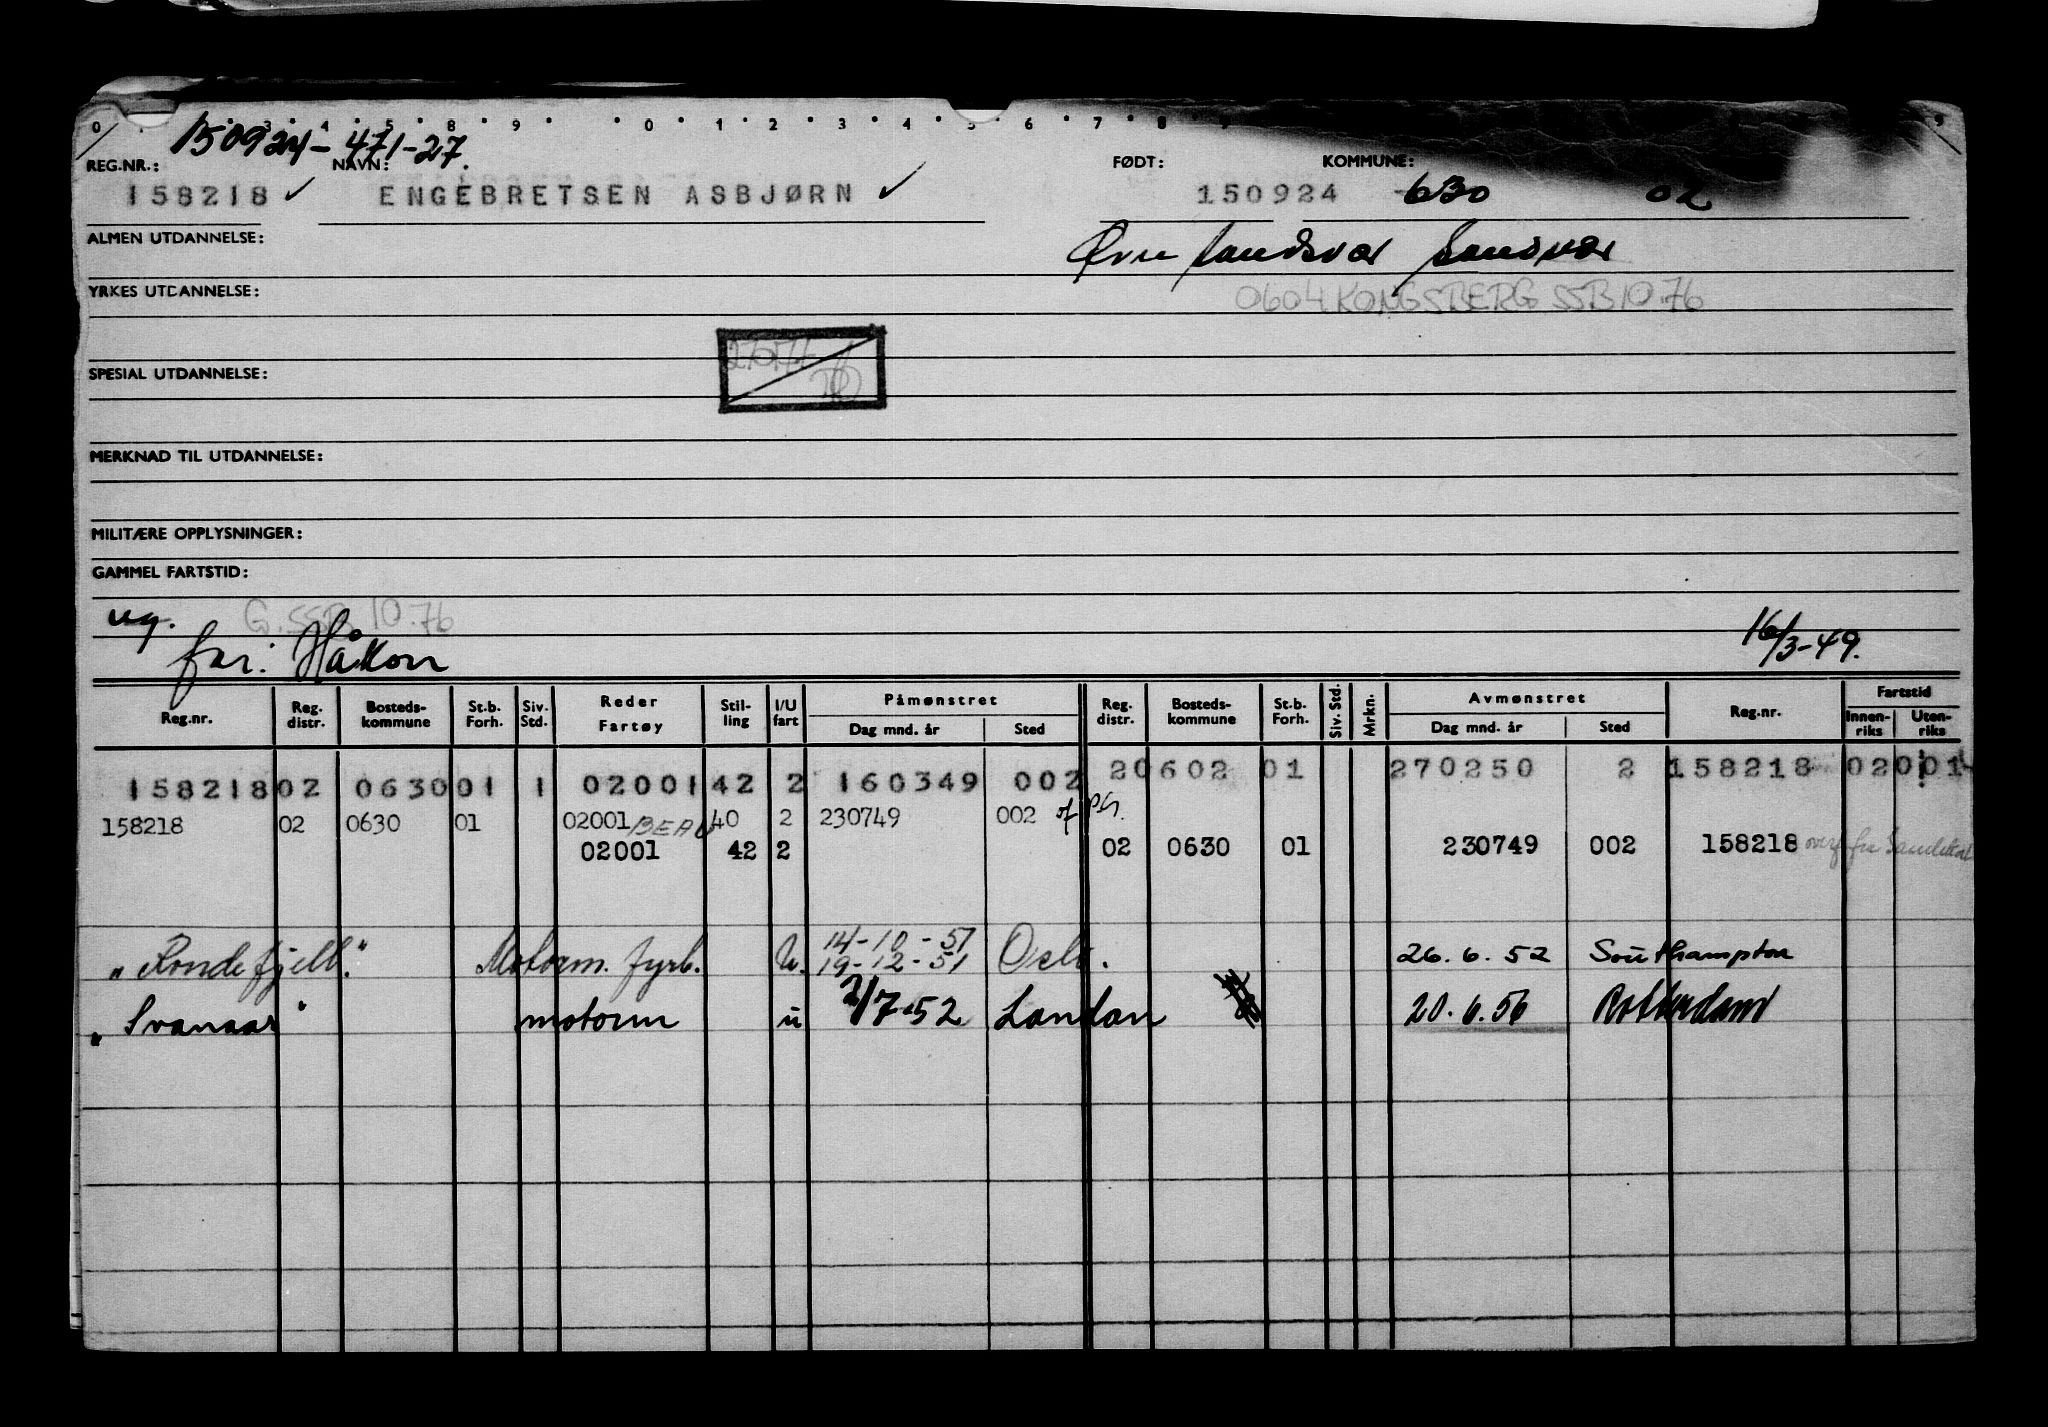 150924-471-27.
REG.NR.: NAVN: FØDT: KOMMUNE:
158218 ✓ ENGEBRETSEN ASBJØRN ✓ 150924 630 02
ALMEN UTDANNELSE: Øvre Sandsvær Sandsvær
YRKES UTDANNELSE: 0604 KONGSBERG SSB 10.76
SPESIAL UTDANNELSE:
MERKNAD TIL UTDANNELSE:
MILITÆRE OPPLYSNINGER:
GAMMEL FARTSTID:
ug. G. SSB 10.76
far: Håkon 16/3-49.
Reg.nr. Reg. distr. Bosteds-kommune St.b. Forh. Siv. Std. Reder Fartøy Stil-ling I/U fart Påmønstret Dag mnd. år Sted Reg. distr. Bosteds-kommune St.b. Forh. Siv. Std. Mrkn. Avmønstret Dag mnd. år Sted Reg.nr. Fartstid Innen-riks Uten-riks
158218 02 0630 01 1 02001 42 2 160349 002 20602 01 270250 2 158218 02001
158218 02 0630 01 02001 BEAU 40 2 230749 002
02001 42 2 02 0630 01 230749 002 158218
14-10-51
"Rondefjell" Motorm. fyrb. U. 19-12-51 Oslo. 26.6.52 Southampton
"Svanaar" motorm u 2/7-52 London 20.6.56 Rotterdam